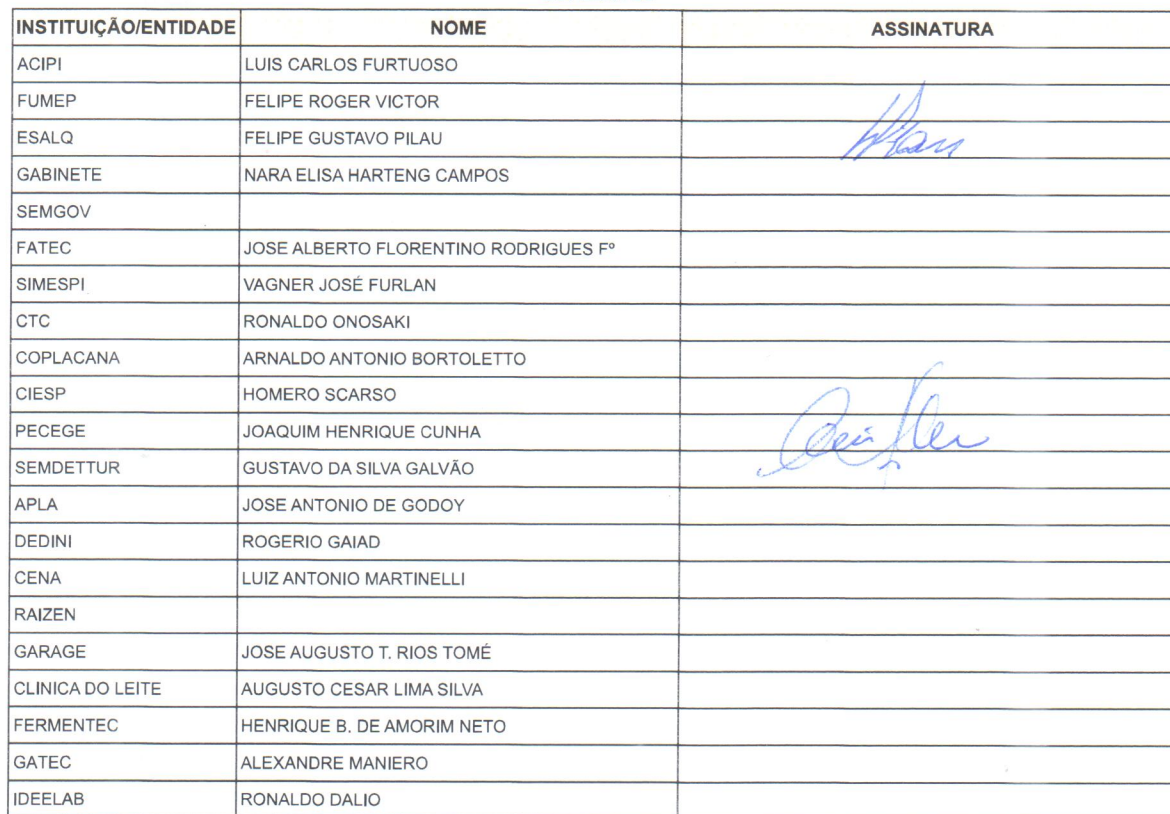 INSTITUIÇÃO/ENTIDADE NOME ASSINATURA
ACIPI LUIS CARLOS FURTUOSO
FUMEP FELIPE ROGER VICTOR
ESALQ FELIPE GUSTAVO PILAU
GABINETE NARA ELISA HARTENG CAMPOS
SEMGOV
FATEC JOSE ALBERTO FLORENTINO RODRIGUES Fº
SIMESPI VAGNER JOSÉ FURLAN
CTC RONALDO ONOSAKI
COPLACANA ARNALDO ANTONIO BORTOLETTO
CIESP HOMERO SCARSO
PECEGE JOAQUIM HENRIQUE CUNHA
SEMDETTUR GUSTAVO DA SILVA GALVÃO
APLA JOSE ANTONIO DE GODOY
DEDINI ROGERIO GAIAD
CENA LUIZ ANTONIO MARTINELLI
RAIZEN
GARAGE JOSE AUGUSTO T. RIOS TOMÉ
CLINICA DO LEITE AUGUSTO CESAR LIMA SILVA
FERMENTEC HENRIQUE B. DE AMORIM NETO
GATEC ALEXANDRE MANIERO
IDEELAB RONALDO DALIO